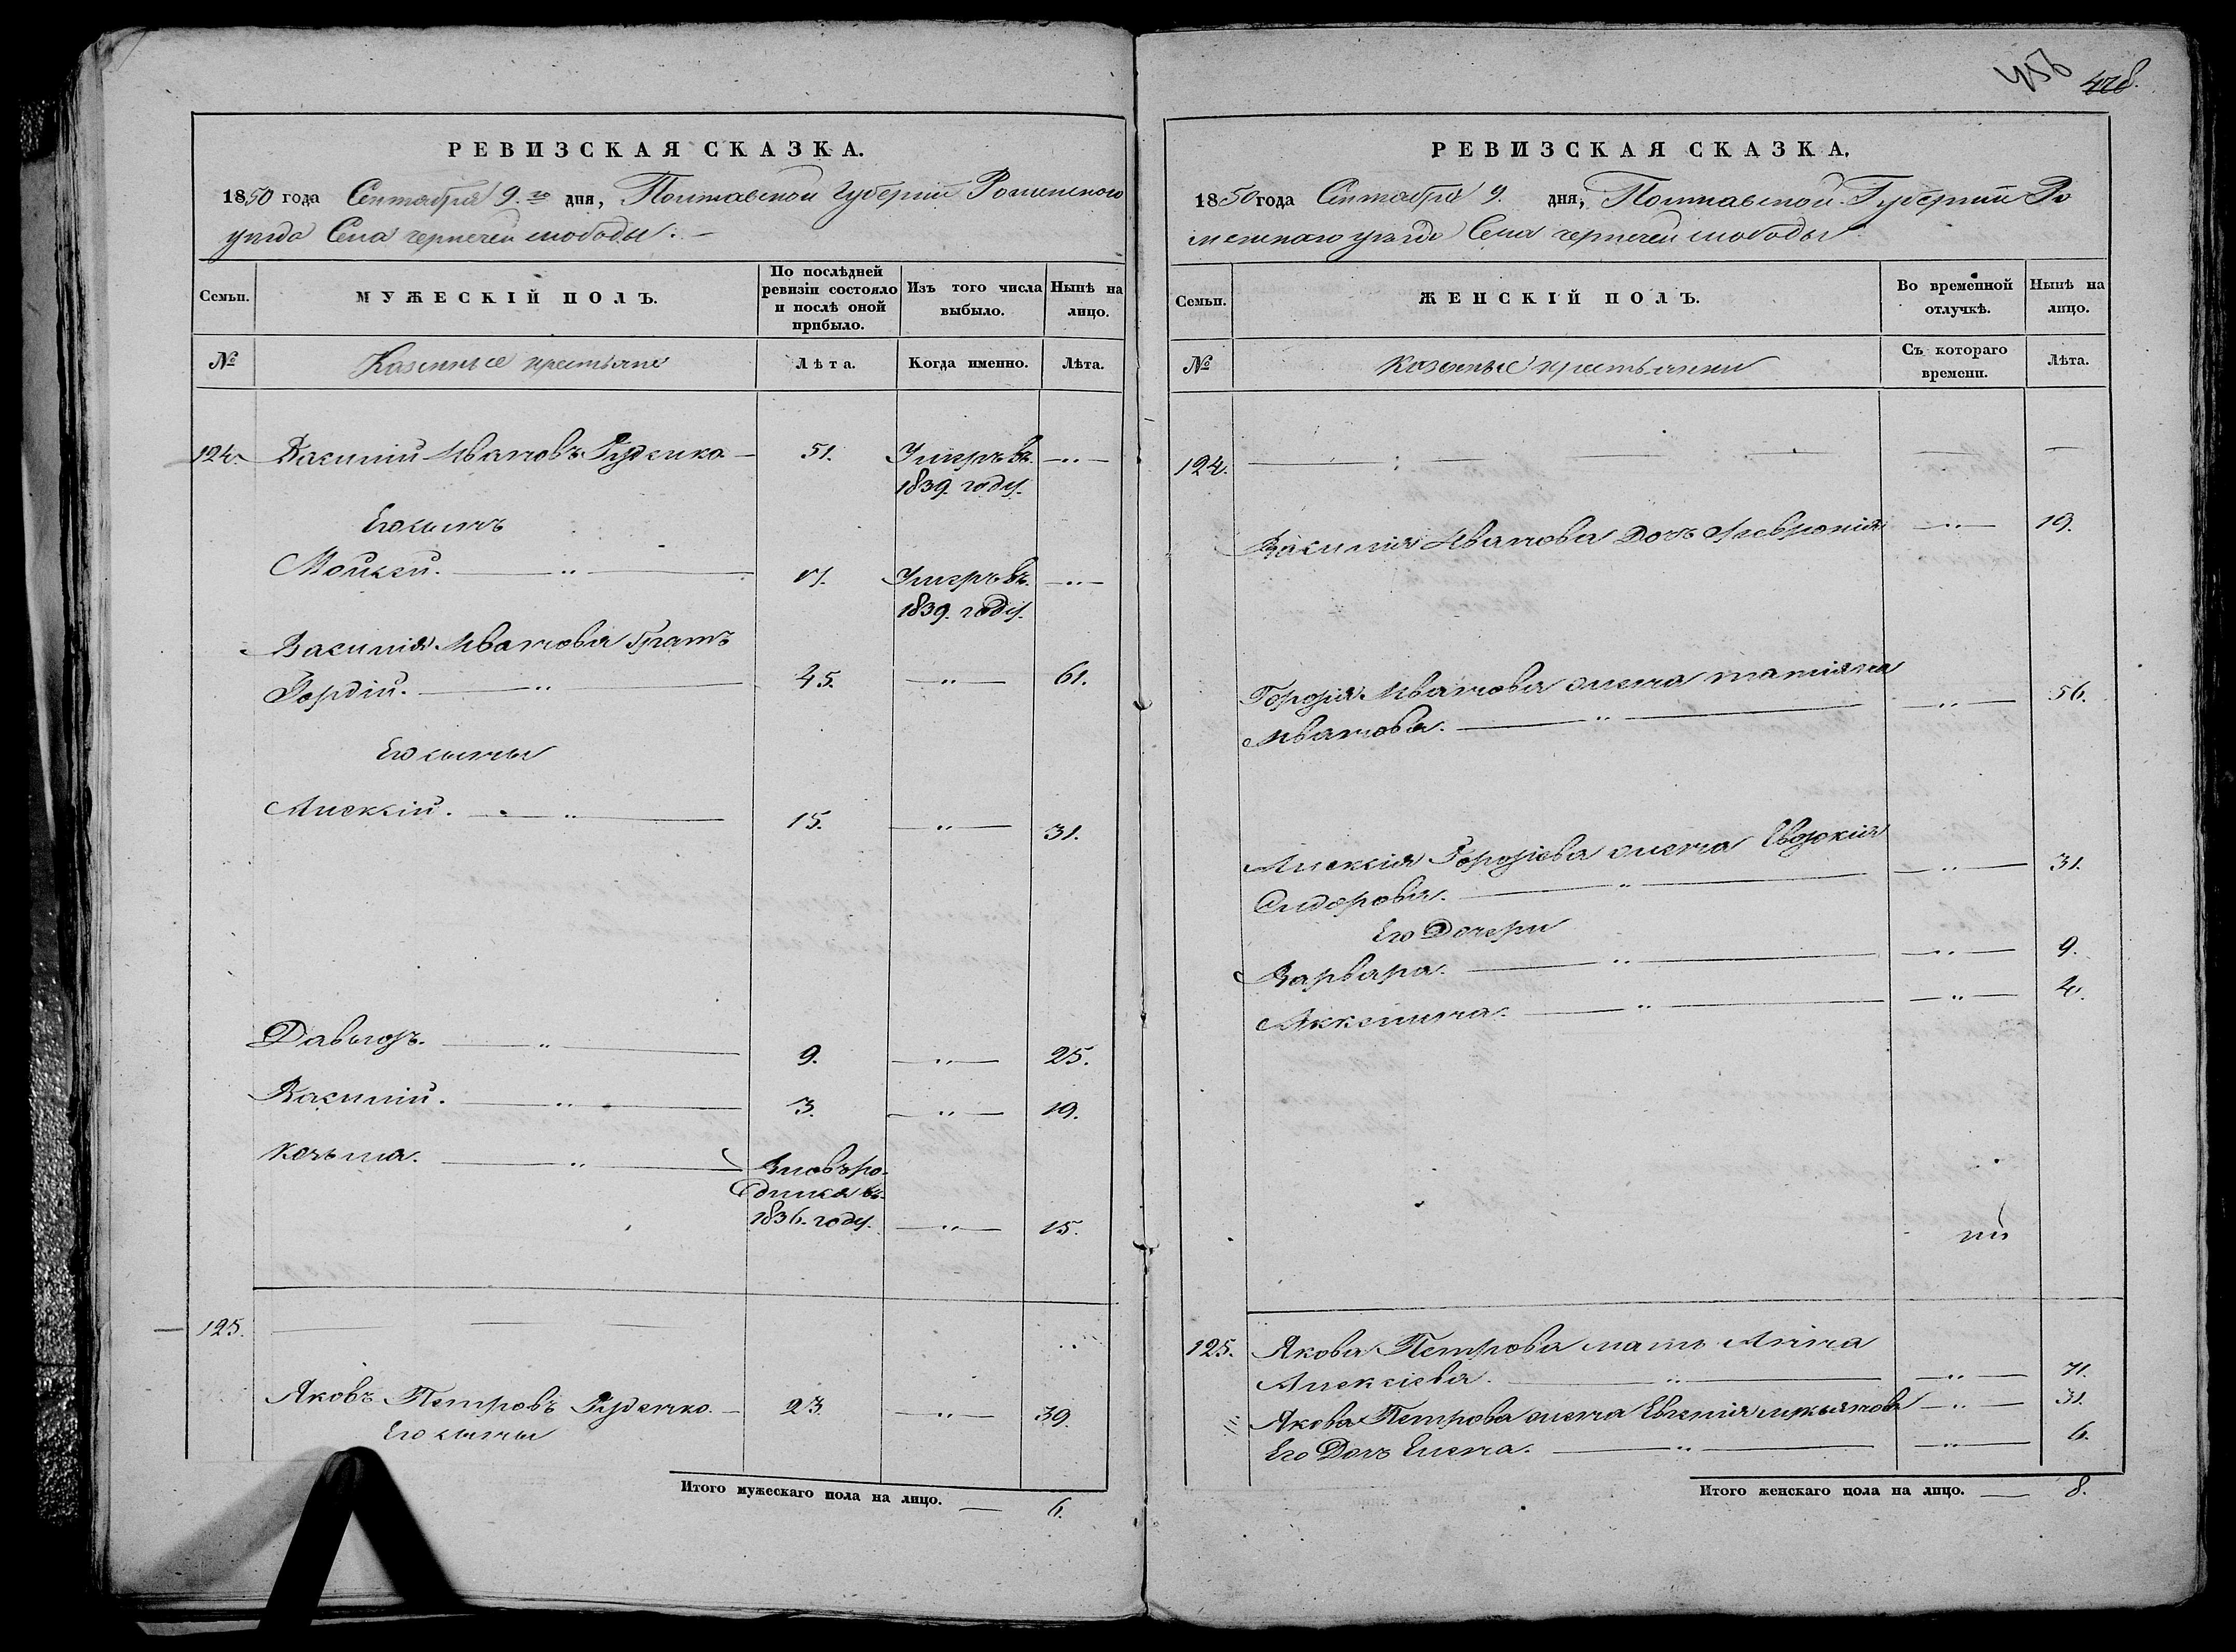 РЕВИЗСКАЯ СКАЗКА.
1850 года Сентября 9.го дня, Полтавской Губернии Роменского
уезда Села чернечей слободы.
Семьи.
МУЖЕСКІЙ ПОЛЪ.
По послѣдней ревизіи состояло и послѣ оной прибыло.
Изъ того числа выбыло.
Нынѣ на лицо.
№
Казенные крестьяне
Лѣта.
Когда именно.
Лѣта.
124. Василий Ивановъ Руденко 51. Умеръ въ
1839. году.
Его сынъ
Моисей. Умеръ въ
1839. году.
Василія Иванова братъ
Гордій. 45. 61.
Его сыны
Алексій. 15. 31.
Давыдъ. 9. 25.
Василій. 3. 19.
Козьма. Вновь ро-
дился въ
1836. году. 15.
125.
Яковъ Петровъ Руденко. 23. 39.
Его сыны
Итого мужескаго пола на лицо. 6.
456 478.
РЕВИЗСКАЯ СКАЗКА.
1850 года Сентября 9. дня, Полтавской Губерніи Ро
менского уезда Села чернечей слободы
Семьи.
ЖЕНСКІЙ ПОЛЪ.
Во временной отлучкѣ.
Нынѣ на лицо.
№
Казенные крестьянки
Съ котораго времени.
Лѣта.
124.
Василія Иванова дочь Феврония 19.
Гордія Иванова жена татіяна
Иванова. 56.
Алексія Гордіева жена Евдокия
Сидорова. 31.
Его Дочери
Варвара. 9.
Аксенина. 4.
125. Якова Петрова мать Анна
Алексіева. 71.
Якова Петрова жена Евгенія 31.
Его Дочь Елена. 6.
Итого женскаго пола на лицо. 8.